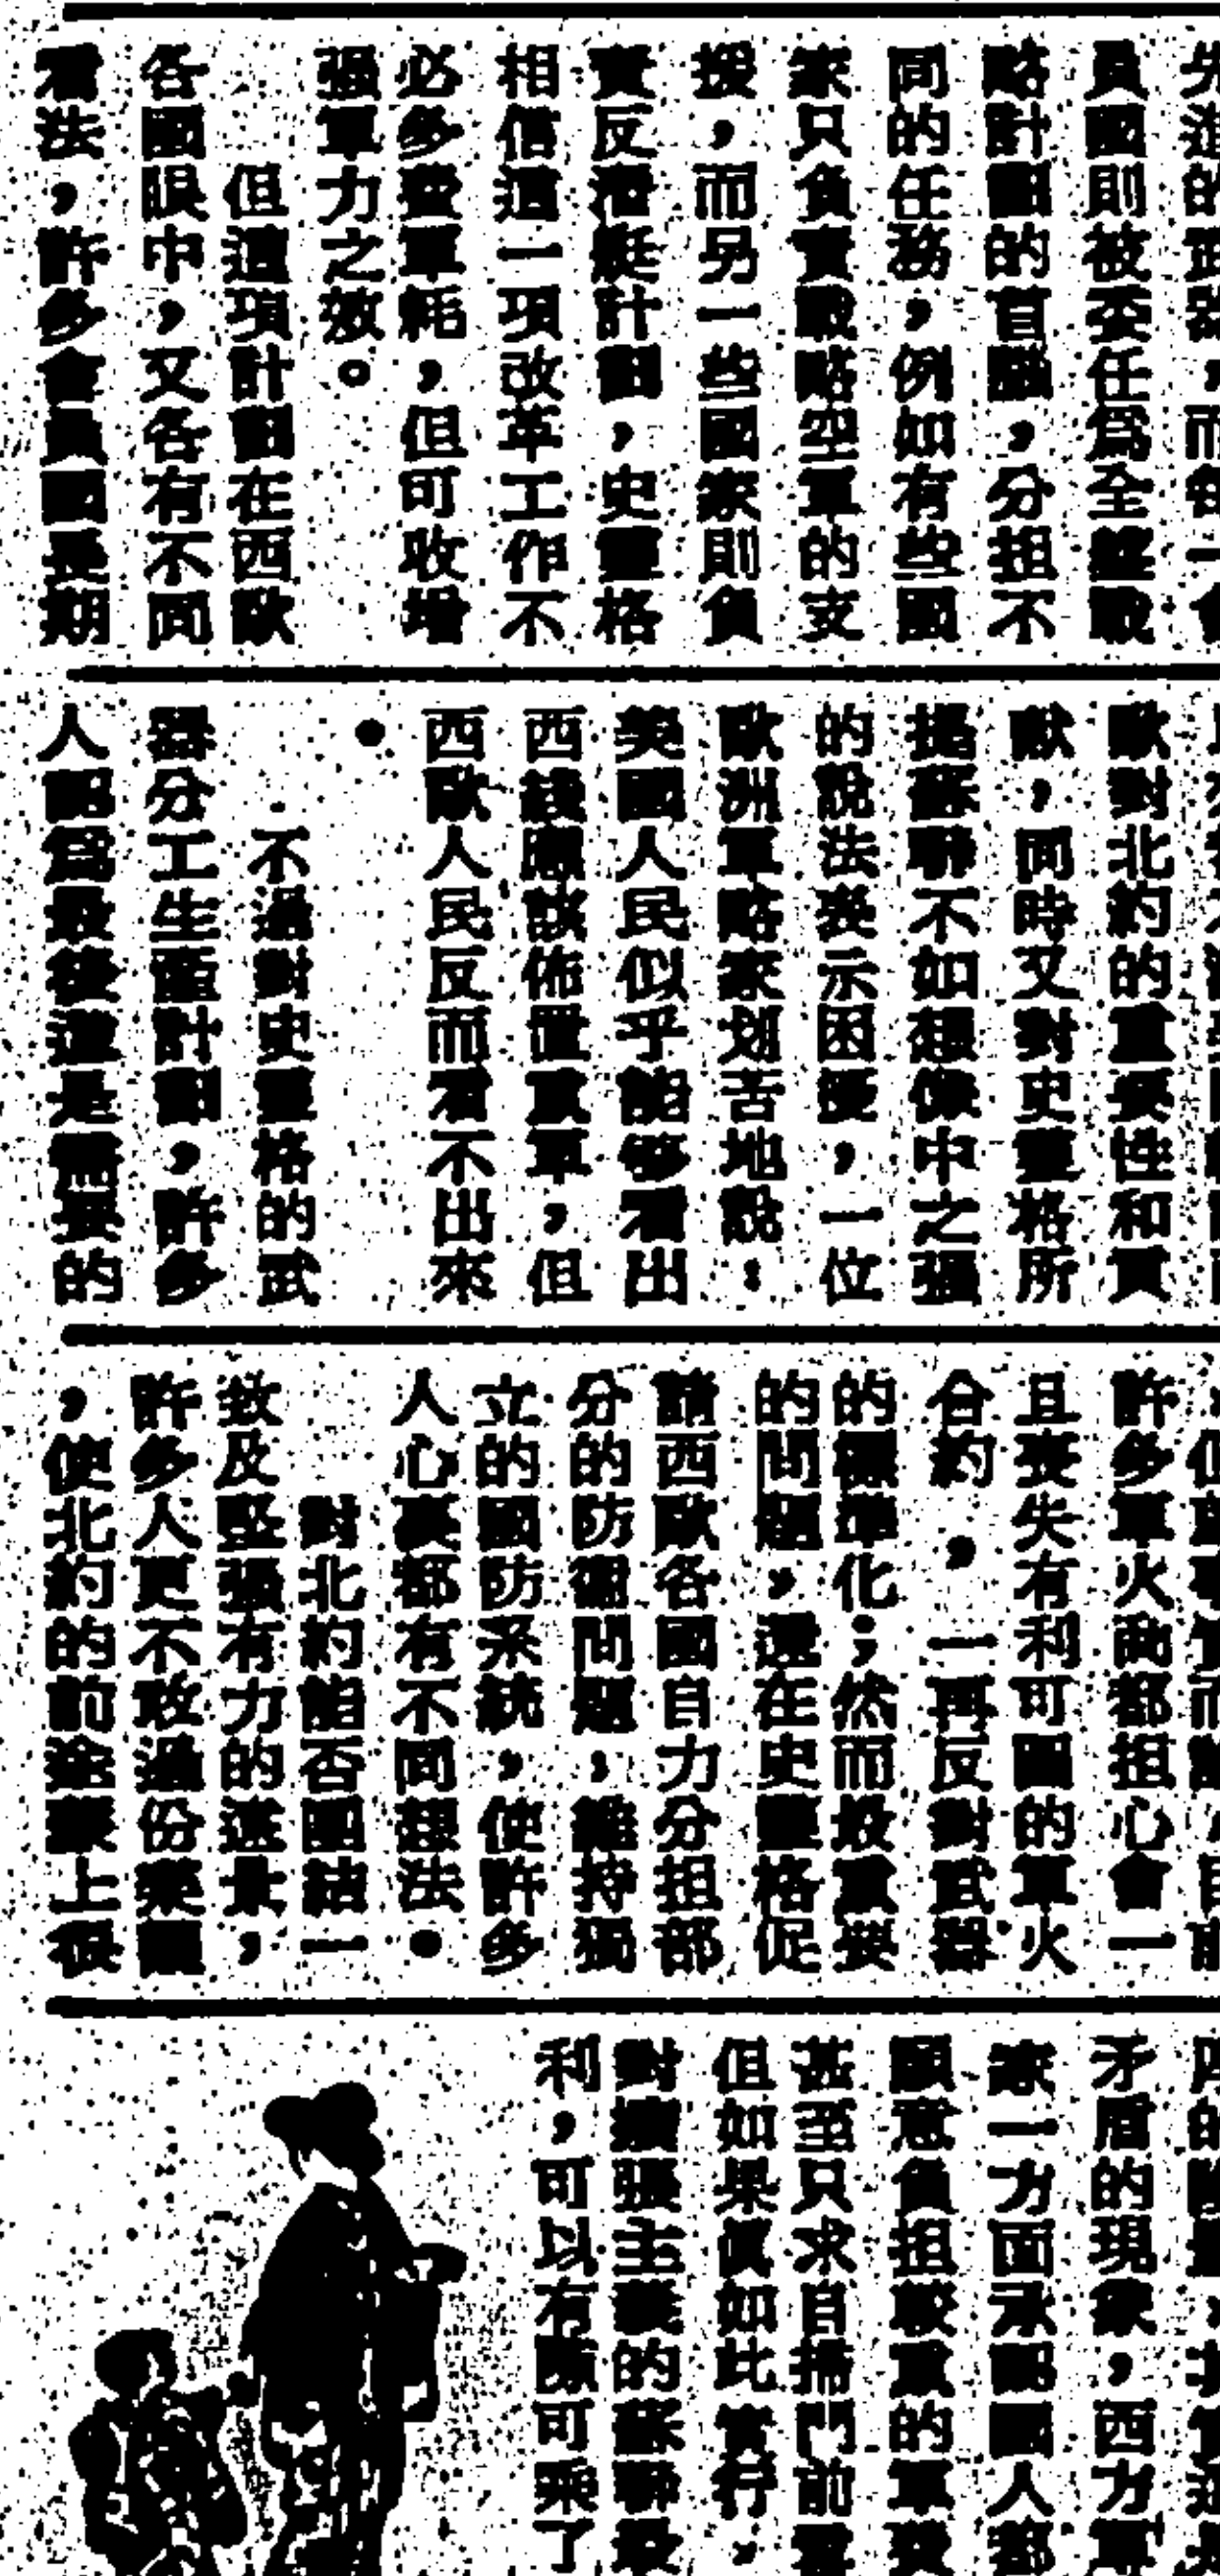 先進的武器，而每一會
員國則被委任爲全盤戰
略計劃的首腦，分担不
同的任務，例如有些國
家只負責戰略空軍的支
援，而另一些國家則負
責反潛艇計劃，史靈格
相信這一項改革工作不
必多費軍耗，但可收增
强軍力之效。
但這項計劃在西歐
各國眼中，又各有不同
看法，許多會員國長期
歐對北約的重要性和貢
獻，同時又對史靈格所
指蘇聯不如想像中之强
的說法表示困擾，一位
歐洲軍略家划苦地說：
美國人民似乎能够看出
西綫應該佈置重軍，但
西歐人民反而看不出來
●
不過對史靈格的武
器分工生產計劃，許多
人認爲最後還是需要的
許多軍火商都担心會一
且喪失有利可圖的軍火
合約，一再反對武器
的標準化；然而最重要
的問題，還在史靈格促
請西歐各國自力分担部
分的防衛問題，維持獨
立的國防系統，使許多
人心裏都有不同想法●
對北約能否團結一
致及堅强有力的遠景，
許多人更不敢過份樂觀
，使北約的前途蒙上很
矛盾的現象，西方軍
家一方面承認國人都
願意負担較重的軍費
甚至只求自掃門前雪
但如果眞如此實行，
對擴張主義的蘇聯最
利，可以有隙可乘了